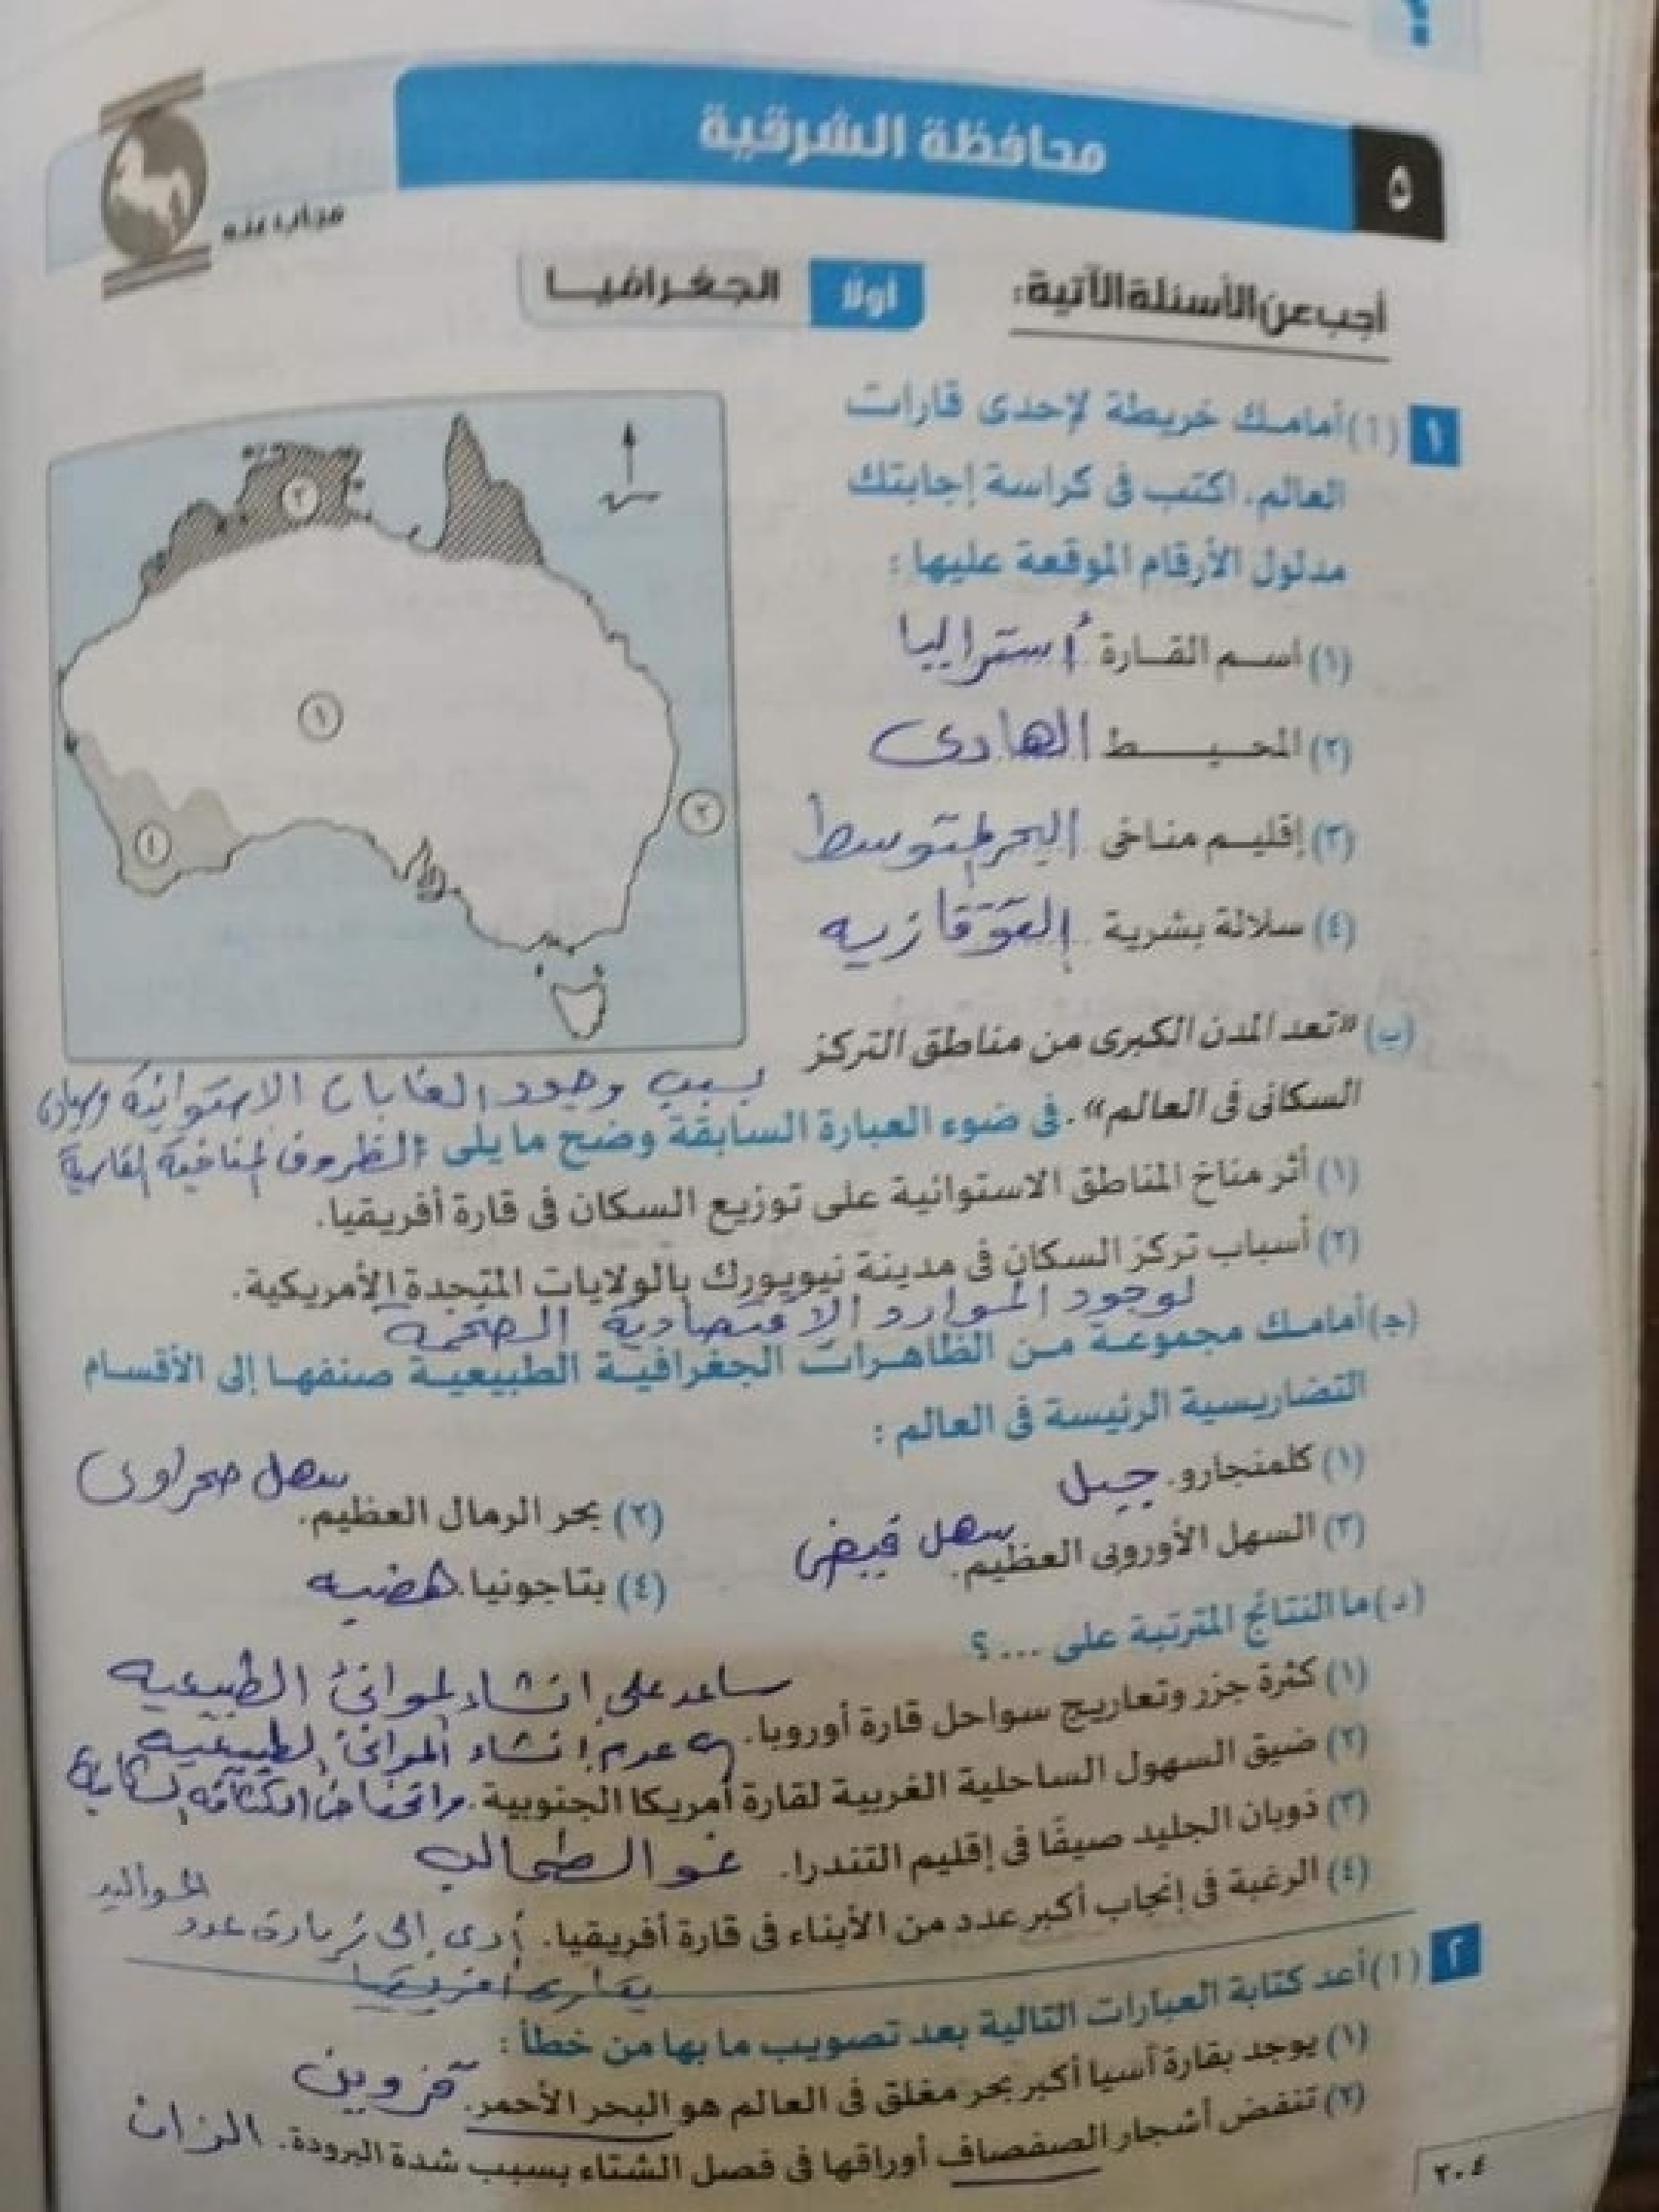 ٥
محافظة الشرقية
مجاب عنه
أجب عن الأسئلة الآتية:
أولا
الجغرافيا
١
(أ) أمامك خريطة لإحدى قارات
العالم. اكتب فى كراسة إجابتك
مدلول الأرقام الموقعة عليها:
(١) اسم القارة أستراليا
(٢) المحيط الهادى
(٣) إقليم مناخى البحر المتوسط
(٤) سلالة بشرية القوقازيه
٣
١
٢
٤
(ب) «تعد المدن الكبرى من مناطق التركز
السكانى فى العالم». فى ضوء العبارة السابقة وضح ما يلى:
بسبب وجود الغابات الاستوائية
الظروف المناخية القاسية
(١) أثر مناخ المناطق الاستوائية على توزيع السكان فى قارة أفريقيا.
(٢) أسباب تركز السكان فى مدينة نيويورك بالولايات المتحدة الأمريكية.
لوجود الموارد الاقتصادية الضخمة
(ج) أمامك مجموعة من الظاهرات الجغرافية الطبيعية صنفها إلى الأقسام
التضاريسية الرئيسة فى العالم:
(١) كلمنجارو. جبل
(٢) بحر الرمال العظيم. سهل صحراوى
(٣) السهل الأوروبى العظيم. سهل فيضى
(٤) بتاجونيا. هضبه
(د) ما النتائج المترتبة على ...؟
(١) كثرة جزر وتعاريج سواحل قارة أوروبا. ساعد على إنشاء الموانئ الطبيعيه
(٢) ضيق السهول الساحلية الغربية لقارة أمريكا الجنوبية. عدم إنشاء الموانئ الطبيعيه
وانخفاض الكثافه السكانية
(٣) ذوبان الجليد صيفًا فى إقليم التندرا. نمو الطحالب
(٤) الرغبة فى إنجاب أكبر عدد من الأبناء فى قارة أفريقيا. أدى إلى زيادة عدد
المواليد
بقارة أفريقيا
٢
(أ) أعد كتابة العبارات التالية بعد تصويب ما بها من خطأ:
(١) يوجد بقارة آسيا أكبر بحر مغلق فى العالم هو البحر الأحمر. قزوين
(٢) تنفض أشجار الصفصاف أوراقها فى فصل الشتاء بسبب شدة البرودة. الزان
٢٠٤